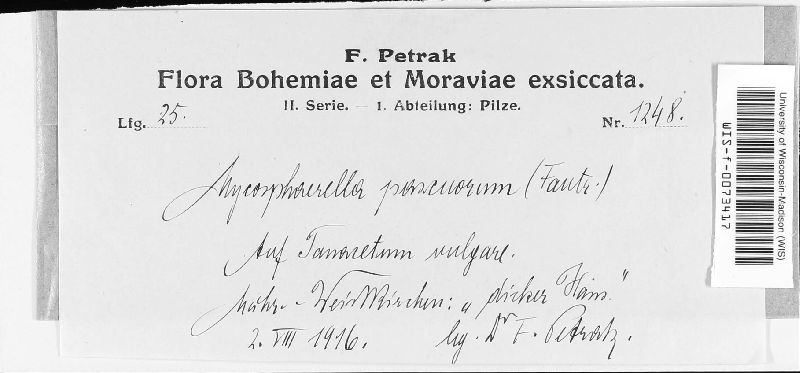 F. Petrak
Flora Bohemiae et Moraviae exsiccata.
II. Serie. — I. Abteilung: Pilze.
Lfg. 25.
Nr. 1248.
Mycosphaerella pascuorum (Fautr.)
Auf Tanacetum vulgare.
Mähr.-Weisskirchen: „dicker Hains"
2. VIII 1916. lg. Dr F. Petrak.
University of Wisconsin-Madison (WIS)
WIS-f-0073417